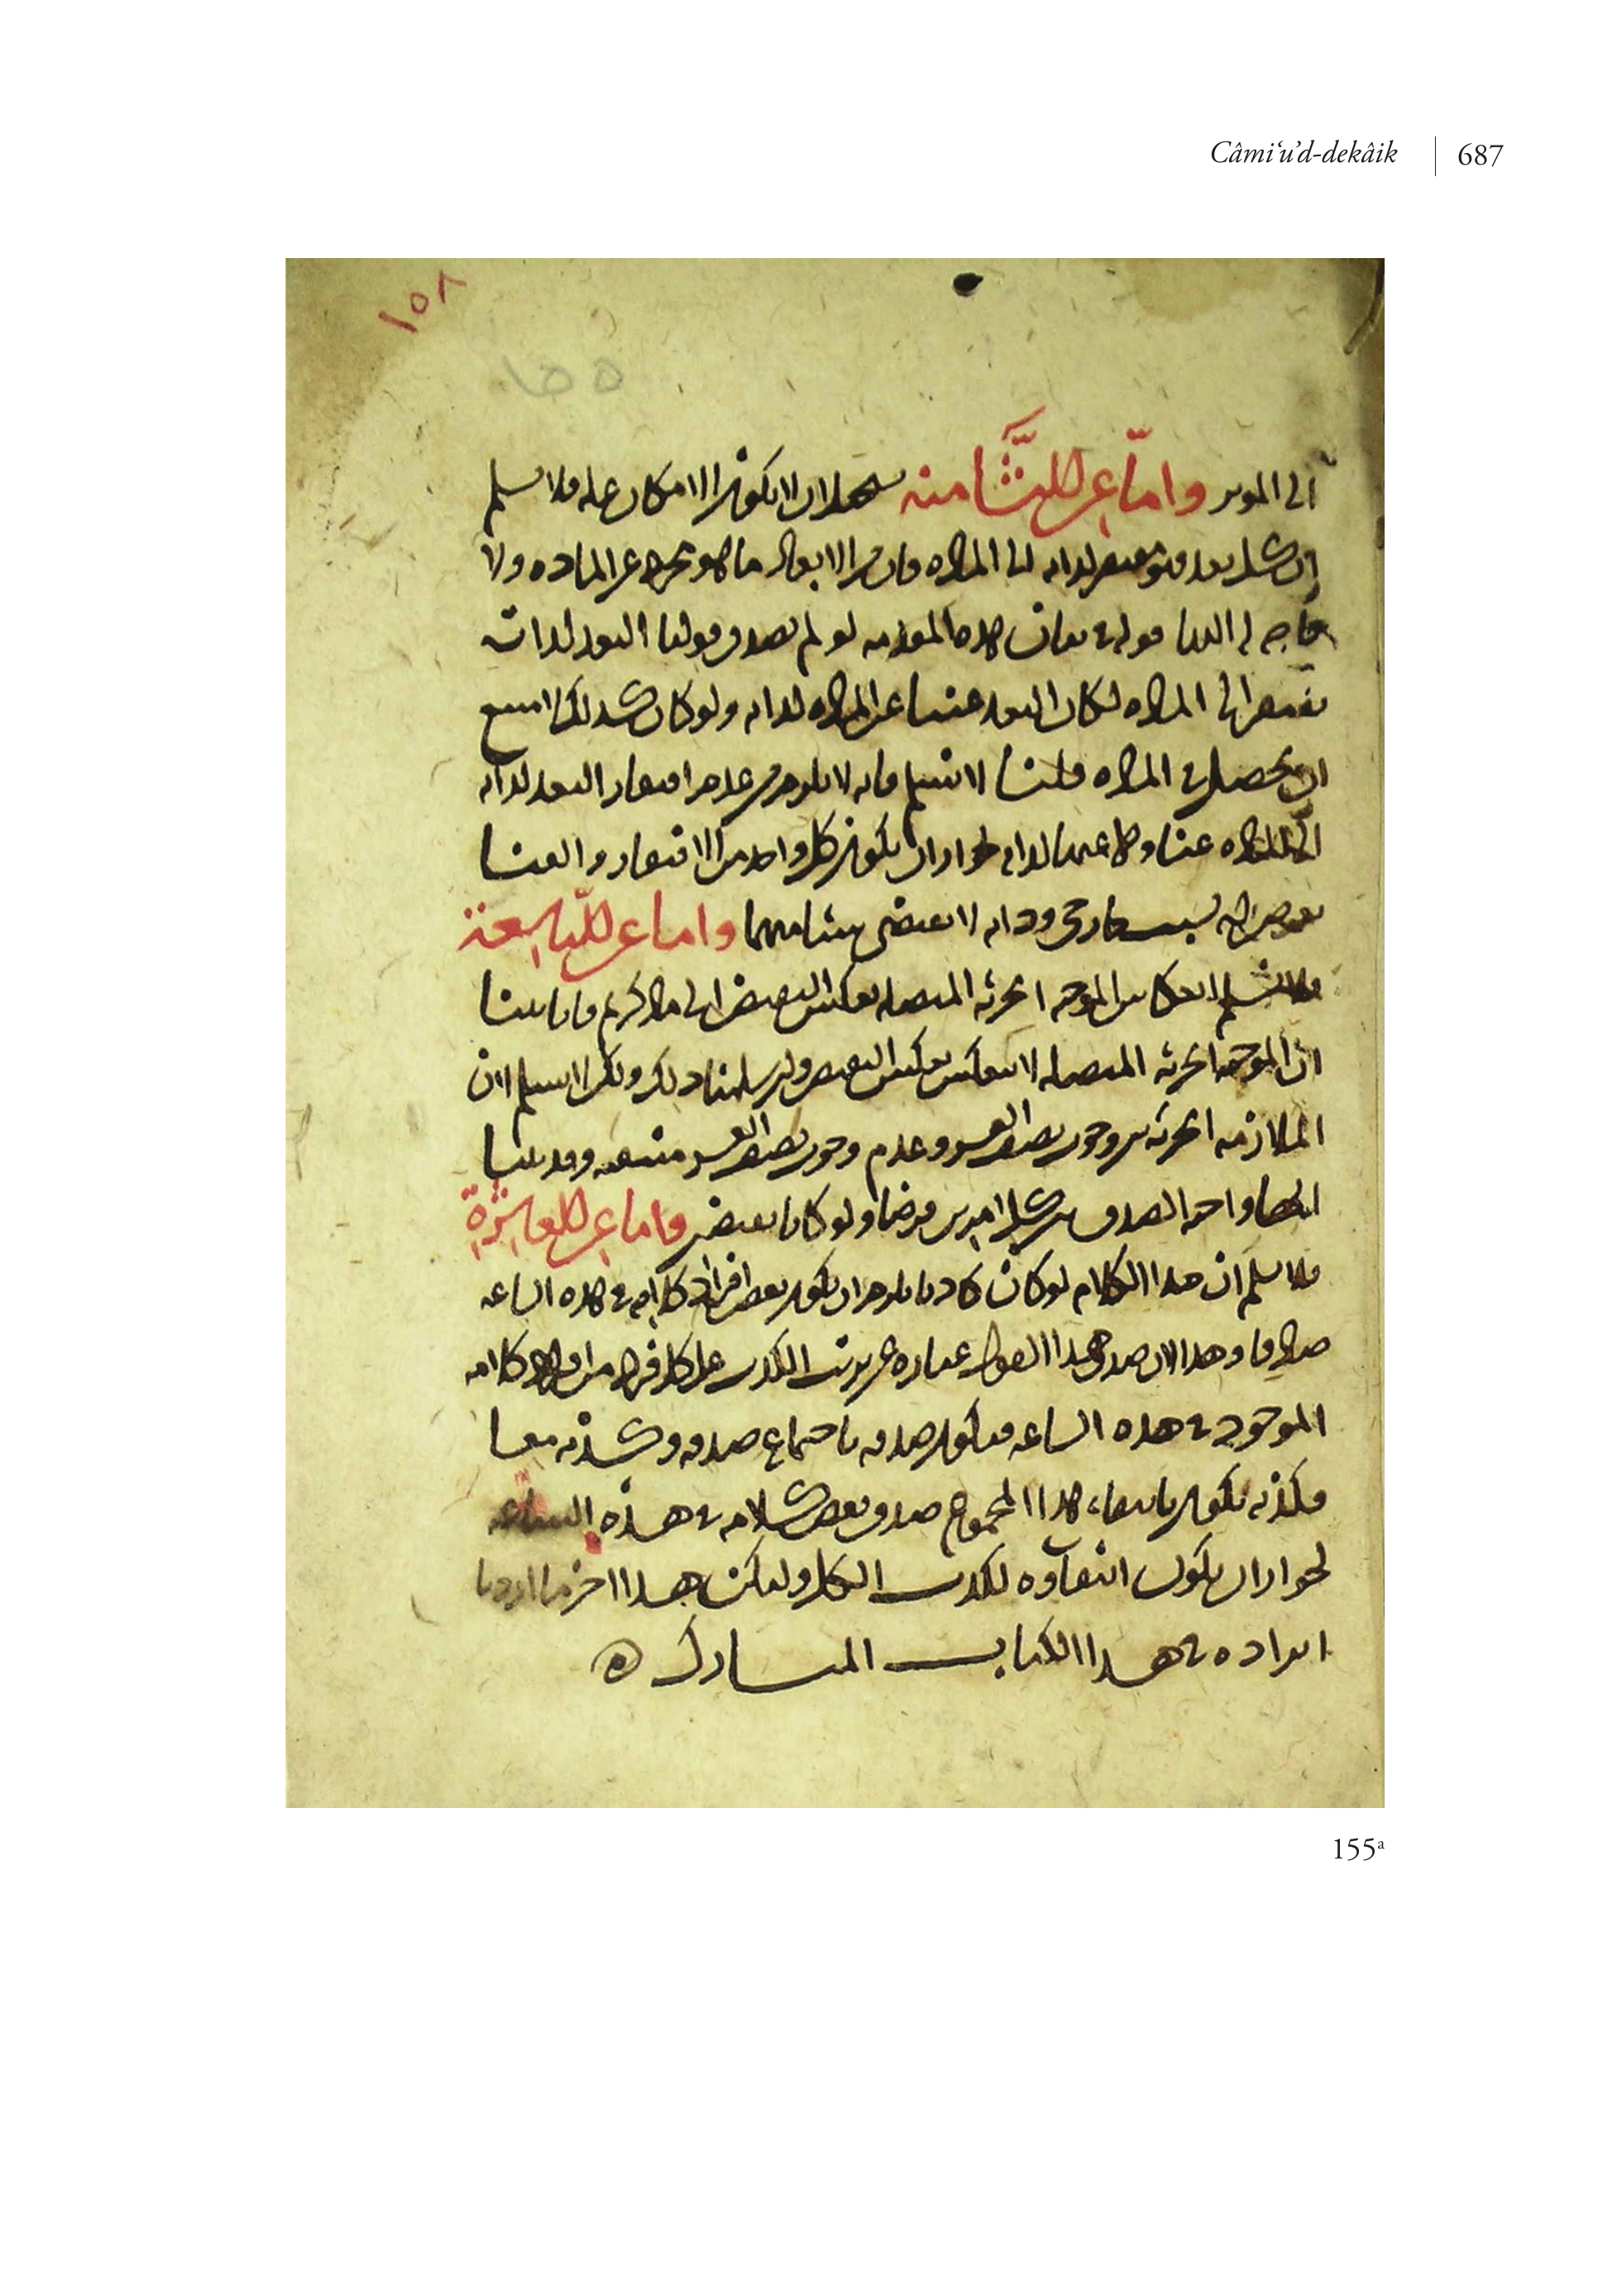 Câmi‘u’d-dekâik | 687
١٥٨
١٥٥
الى الموثر واما عن الثامنة فلان الامكان عله فلا نسلم
ان كل بعد فهو مفتقر لذاته الى الماده فان من الابعاد ما هو مجرد عن الماده ولا
لو لم يصدق قولنا البعد لذاته
مفتقر الى الماده لكان البعد غنيا عن الماده لذاته ولو كان كذلك لامتنع
ان يحصل في الماده قلنا لا نسلم فانه لا يلزم من عدم افتقار البعد لذاته
الى الماده غناوه عنها لذاته لجواز ان يكون كل واحد من الافتقار والغنا
بسبب خارجي وذاته لا تقتضي شيئا منهما واما عن التاسعة
فلا نسلم انعكاس الموجبه الجزئيه المتصله بعكس النقيض الى ما ذكرتم فانا بينا
ان الموجبه الجزئيه المتصله لا تنعكس بعكس النقيض ولين سلمنا ذلك ولكن لا نسلم ان
الملازمه الجزئيه بين وجود وعدم وجود منتفيه وقد بينا
انها واجبه الصدق بين كل امرين فرضا ولو كانا نقيضين واما عن العاشرة
فلا نسلم ان هذا الكلام لو كان كاذبا يلزم ان يكون بعض افراد كلامه في هذه الساعه
صادقا وهذا لان صدق هذا القول عباره عن ترتب الكذب على كل فرد من افراد كلامه
الموجود في هذه الساعه فيكون صدقه باجتماع صدقه وكذبه معا
فكذبه يكون بانتفاء هذا المجموع صدق بعض كلامه في هذه الساعه
لجواز ان يكون انتفاوه لكذب الكل وليكن هذا اخر ما اردنا
ايراده في هذا الكتاب المبارك ه
155ᵃ